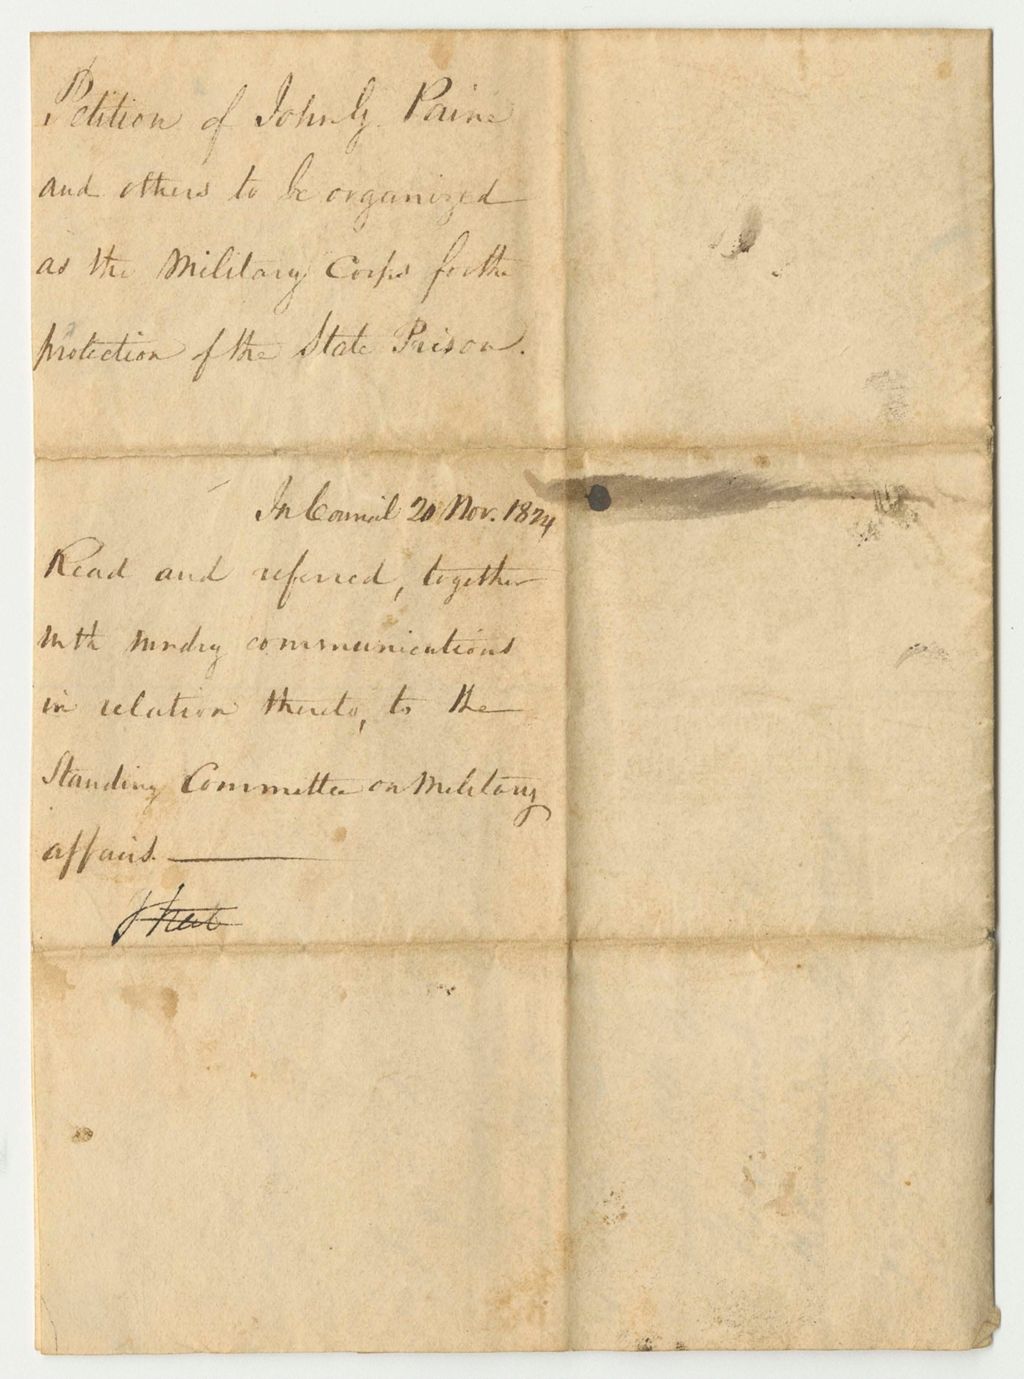 Petition of John G. Paine
and others to be organized
as the Military Corps for the
protection of the State Prison.
In Council 20 Nov. 1824
Read and referred, together
with sundry communications
in relation thereto, to the
Standing Committee on Military
affairs.